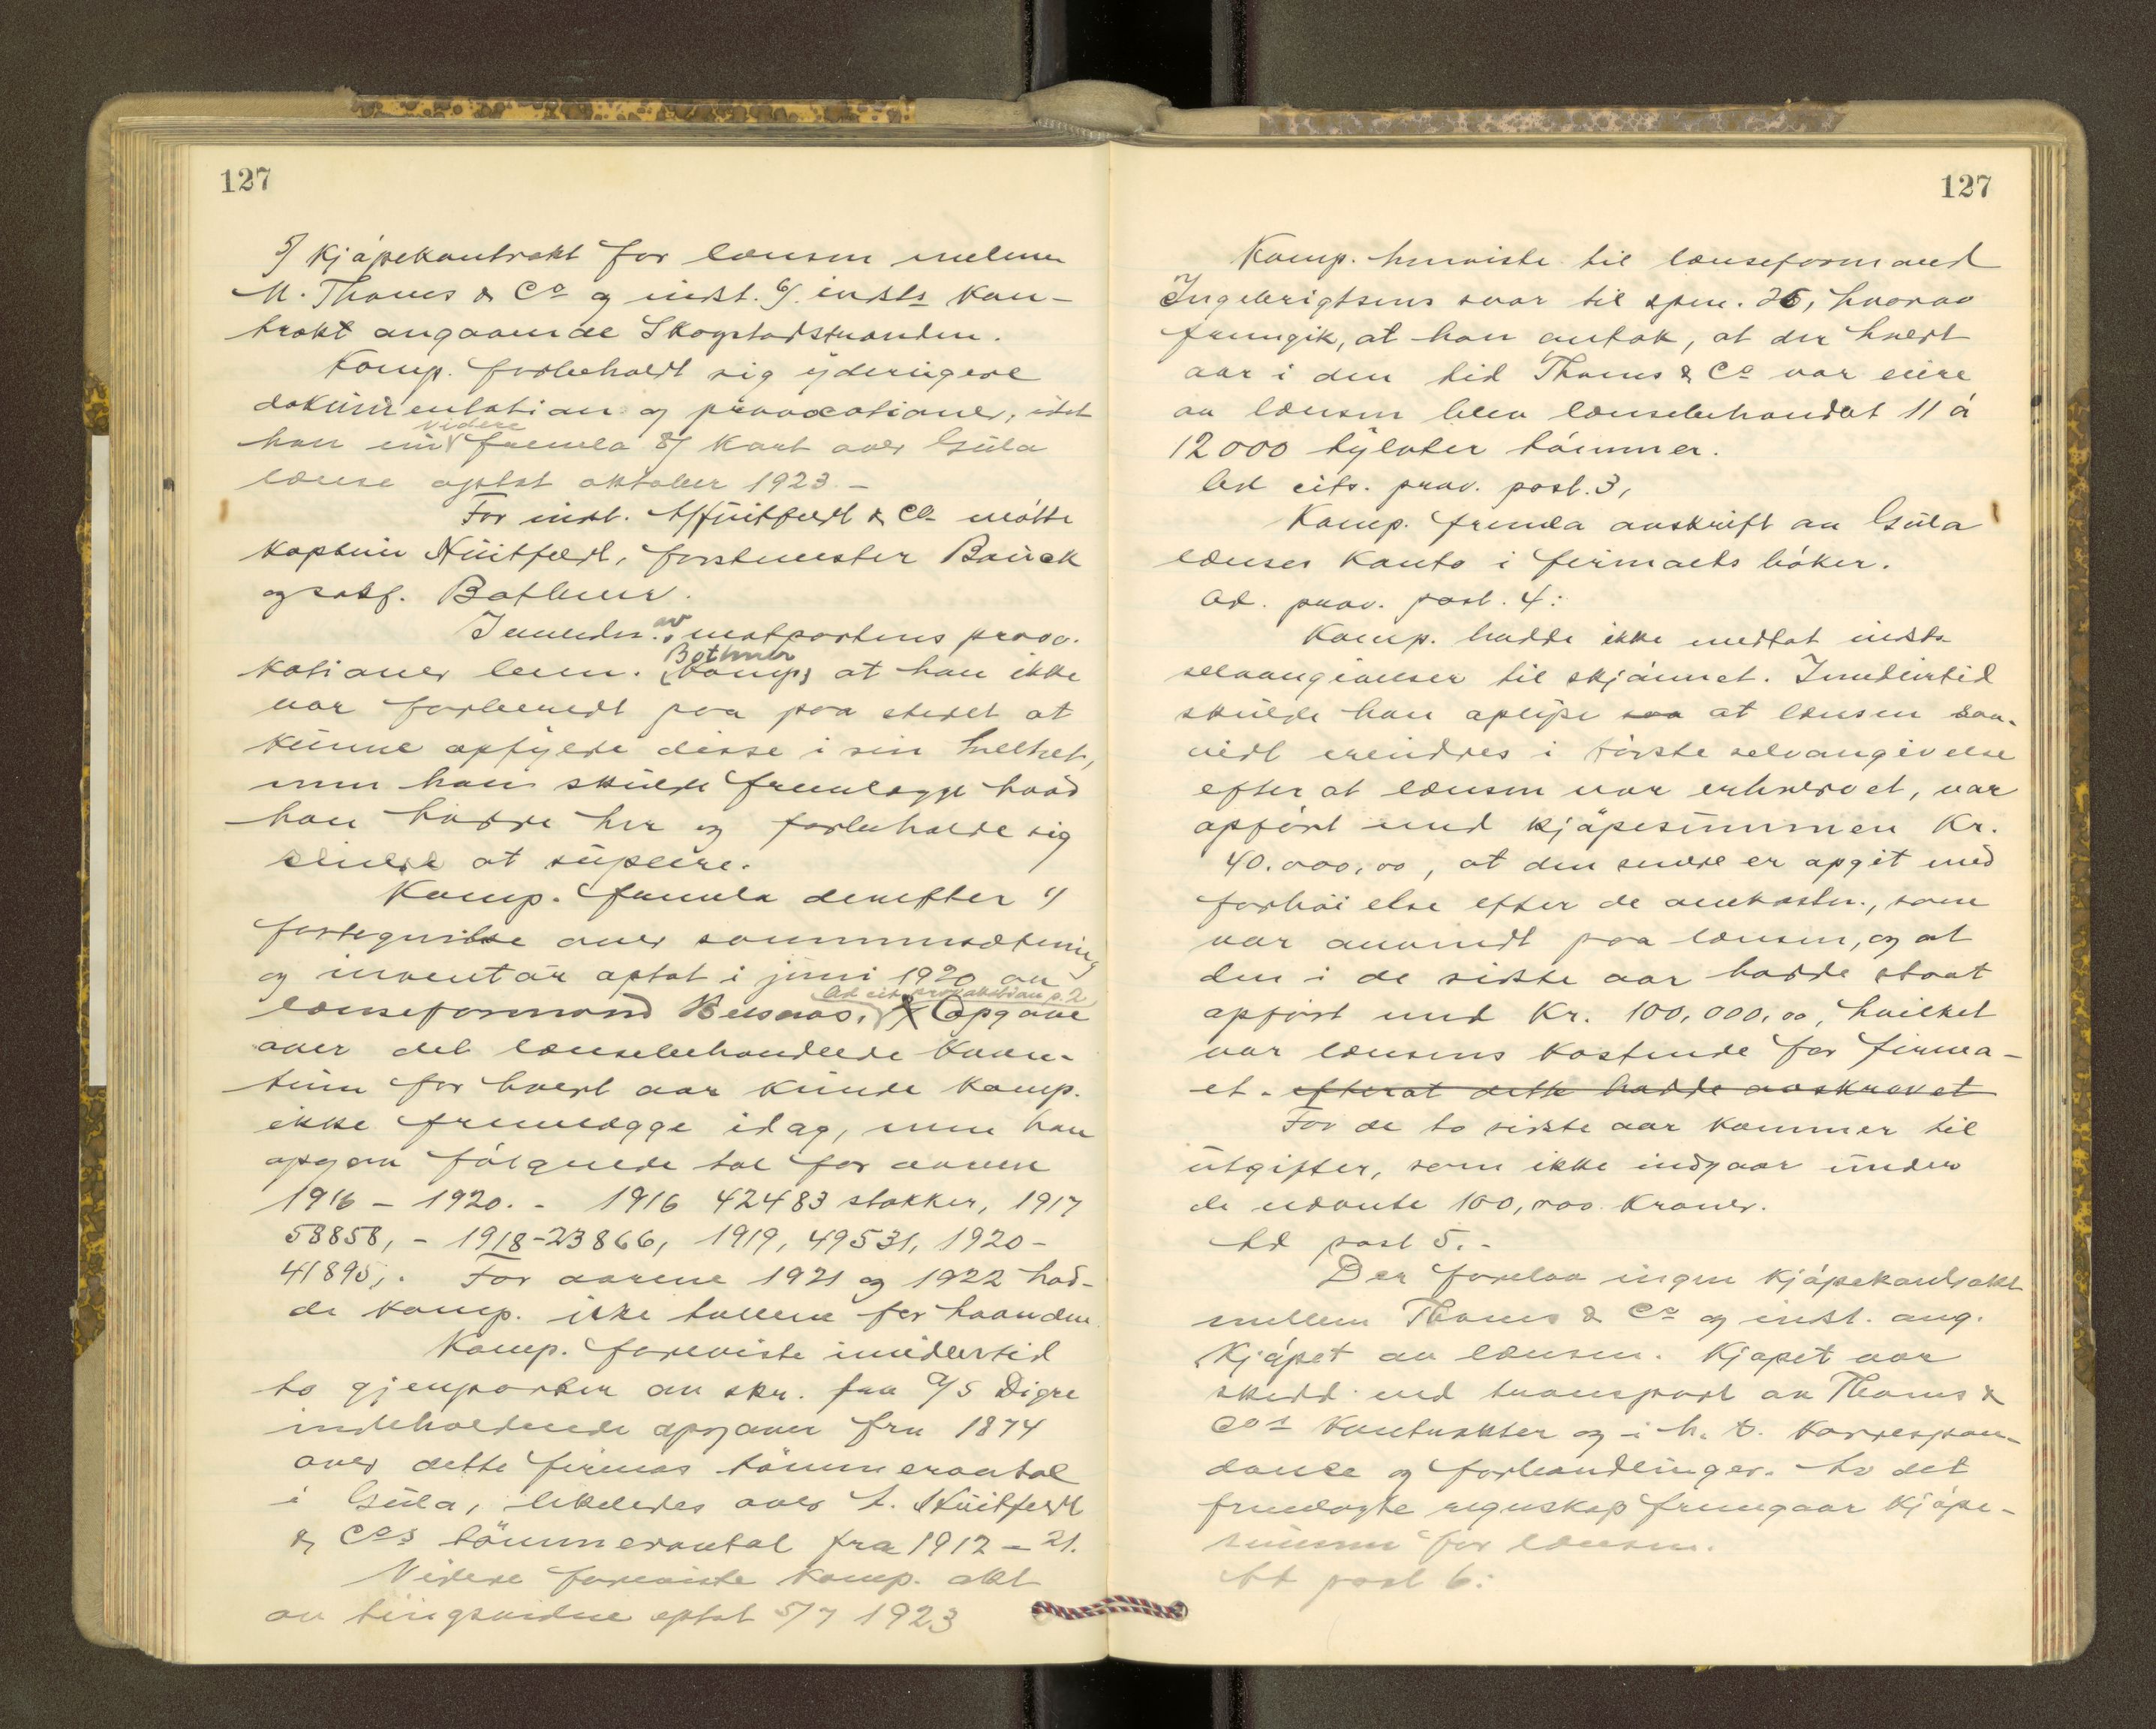 127
5/ Kjøpekontrakt for lænsen mellem
M. Thams & Co og indst. 6/ indsts kon-
trakt angaaende Skogstadstranden.
Komp. forbeholdt sig yderligere
dokumentation og provocationer, idet
han videre fremla 8/ Kart over Gula
lænse optat oktober 1923.-
For indst. A/Huitfeldt & Co møtte
Kaptein Huitfeldt, forstmester Bauck
og sakf. Bothner.
I anledn. av motpartens provo-
kationer bem. (Komp) Bothner at han ikke
var forberedt paa paa stedet at
kunne opfylde disse i sin helhet,
men han skulde fremlægge hvad
han hadde her og forbeholde sig
senere at suplere.
Komp. fremla derefter 1/
fortegnelse over sammensætning
og inventar optat i juni 1920 av
Ad cit. provokation p. 2
lænseformand Belsaas. Opgave
over det lænsebehandlede kvan-
tum for hvert aar kunde komp.
ikke fremlægge idag, men han
opgav følgende tal for aarene
1916 - 1920. - 1916 42483 stokker, 1917
58858, - 1918-23866, 1919, 49531, 1920-
41895,. For aarene 1921 og 1922 had-
de komp. ikke tallene for haanden.
Komp. foreviste imidlertid
to gjenparter av skr. fra A/S Digre
indeholdende opgaver fra 1874
over dette firmas tømmerantal
i Gula, likeledes over A. Huitfeldt
& Cos tømmerantal fra 1912 - 21.
Videre foreviste komp. akt
av tingsvidne optat 5/7 1923
127
Komp. henviste til lænseformand
Ingebrigtsens svar til spm. 26, hvorav
fremgik, at han antok, at der hvert
aar i den tid Thams & Co var eiere
av lænsen blev lænsebehandlet 11 à
12000 tylvter tømmer.
Ad cits. prov. post. 3,
Komp. fremla avskrift av Gula
lænses Konto i firmaets bøker.
Ad. prov. post. 4:
Komp. hadde ikke medtat indsts
selvangivelser til skjønnet. Imidlertid
skulde han oplyse saa at lænsen saa-
vidt erindres i første selvangivelse
efter at lænsen var erhvervet, var
opført med kjøpesummen Kr.
40.000,00, at den senere er opgit med
forhøielse efter de omkostn., som
var anvendt paa lænsen, og at
den i de sidste aar hadde staat
opført med Kr. 100,000,00, hvilket
var lænsens kostende for firma-
et. efterat dette hadde avskrevet
For de to sidste aar kommer til
utgifter, som ikke indgaar under
de nævnte 100,000 Kroner.
Ad post 5. -
Der forelaa ingen kjøpekontrakt
mellem Thams & Co og indst. ang.
Kjøpet av lænsen. Kjøpet var
skedd ved transport av Thams &
Cos Kontrakter og i h. t. Korrespon-
dance og forhandlinger. Av det
fremlagte regnskap fremgaar kjøpe-
summen for lænsen.
Ad post 6: